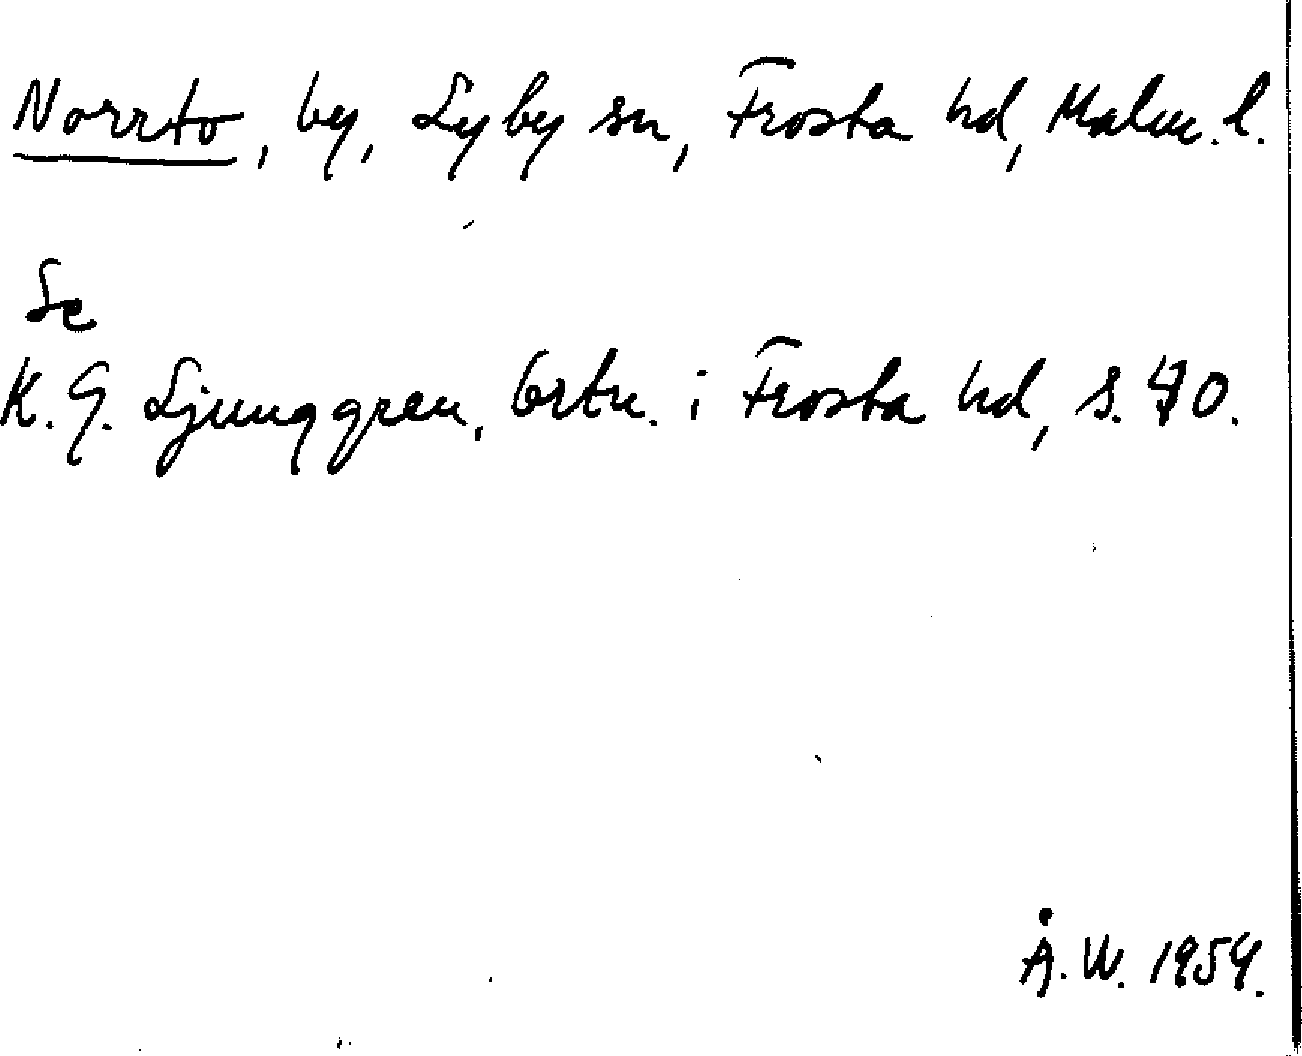 Norrto, by, Lyby sn, Frosta hd, Malm. l.
Se
K. G. Ljunggren, Ortn. i Frosta hd, s. 90.
Å. W. 1954.